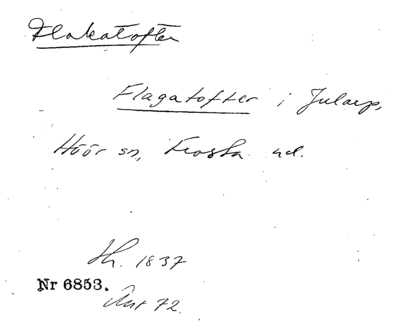 Flakatofter
Flagatofter i Jularp,
Höör sn, Frosta hd.
Sk. 1837
Nr 6853.
Ant 72.